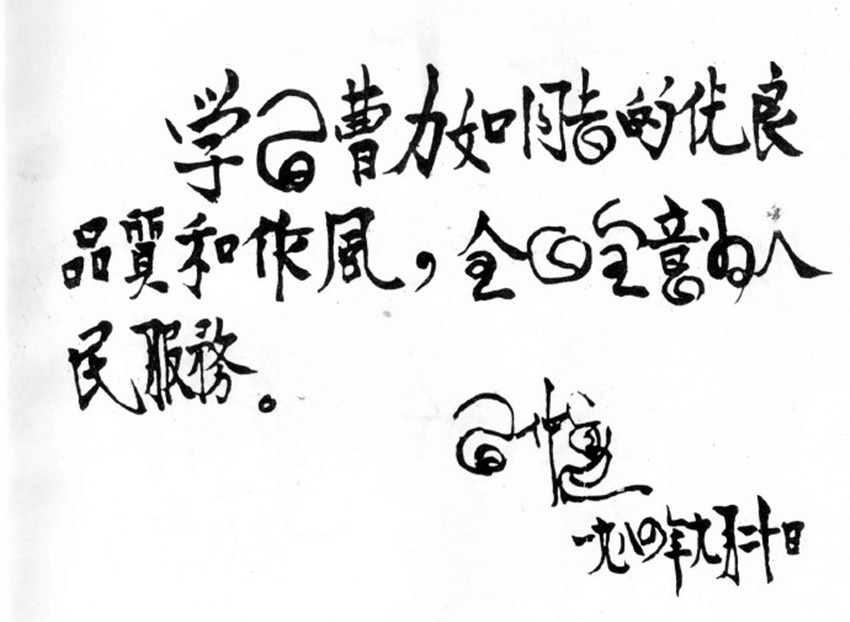 学习曹力如同志的优良
品質和作風，全心全意为人
民服務。
习仲勋
一九八四年九月二十日